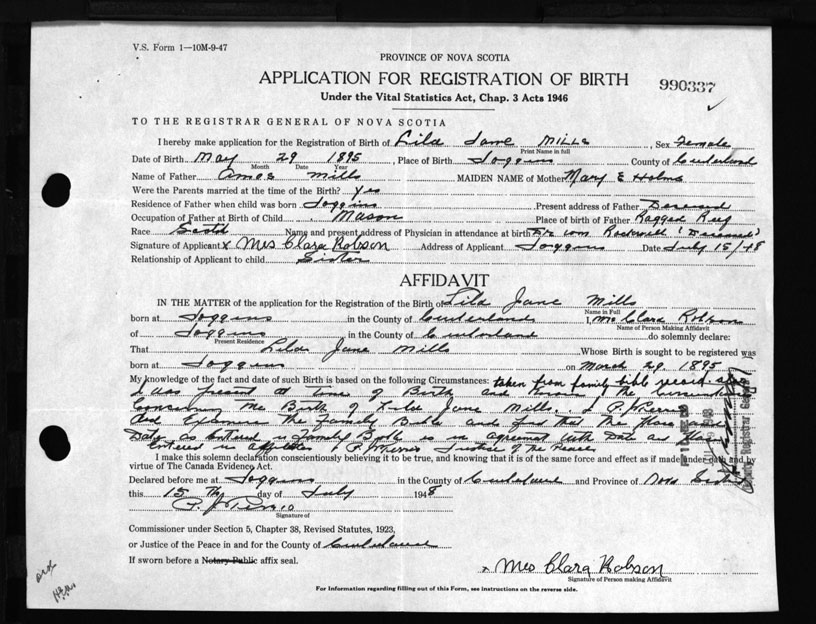 V.S. Form 1—10M-9-47
PROVINCE OF NOVA SCOTIA
APPLICATION FOR REGISTRATION OF BIRTH
990337
Under the Vital Statistics Act, Chap. 3 Acts 1946
TO THE REGISTRAR GENERAL OF NOVA SCOTIA
I hereby make application for the Registration of Birth of Lila Jane Mills, Sex Female
Print Name in full
Date of Birth May 29 1895, Place of Birth Joggins County of Cumberland
Month Date Year
Name of Father Amos Mills MAIDEN NAME of Mother Mary E Holms
Were the Parents married at the time of the Birth? Yes
Residence of Father when child was born Joggins Present address of Father Deceased
Occupation of Father at Birth of Child Mason Place of birth of Father Ragged Reef
Race Scotch Name and present address of Physician in attendance at birth Dr Wm Rockwell (Deceased)
Signature of Applicant x Mrs Clara Robson Address of Applicant Joggins Date July 15/48
Relationship of Applicant to child Sister
AFFIDAVIT
IN THE MATTER of the application for the Registration of the Birth of Lila Jane Mills
Name in Full
born at Joggins in the County of Cumberland I, Mrs Clara Robson
Name of Person Making Affidavit
of Joggins in the County of Cumberland do solemnly declare:
Present Residence
That Lila Jane Mills Whose Birth is sought to be registered was
born at Joggins on March 29, 1895
My knowledge of the fact and date of such Birth is based on the following Circumstances: taken from family bible record.
I was present at time of Birth and know the
Concerning the Birth of Lila Jane Mills. I P.
Examined the Family Bible and find that the place and
Date as Entered in family Bible is in agreement with Date and Place
Entered in Justice of the Peace
I make this solemn declaration conscientiously believing it to be true, and knowing that it is of the same force and effect as if made under oath and by
virtue of The Canada Evidence Act.
Declared before me at Joggins in the County of Cumberland and Province of Nova Scotia
this 15 Th day of July 1948
Signature of
Commissioner under Section 5, Chapter 38, Revised Statutes, 1923,
or Justice of the Peace in and for the County of Cumberland
If sworn before a Notary Public affix seal.
x Mrs Clara Robson
Signature of Person making Affidavit
For Information regarding filling out of this Form, see instructions on the reverse side.